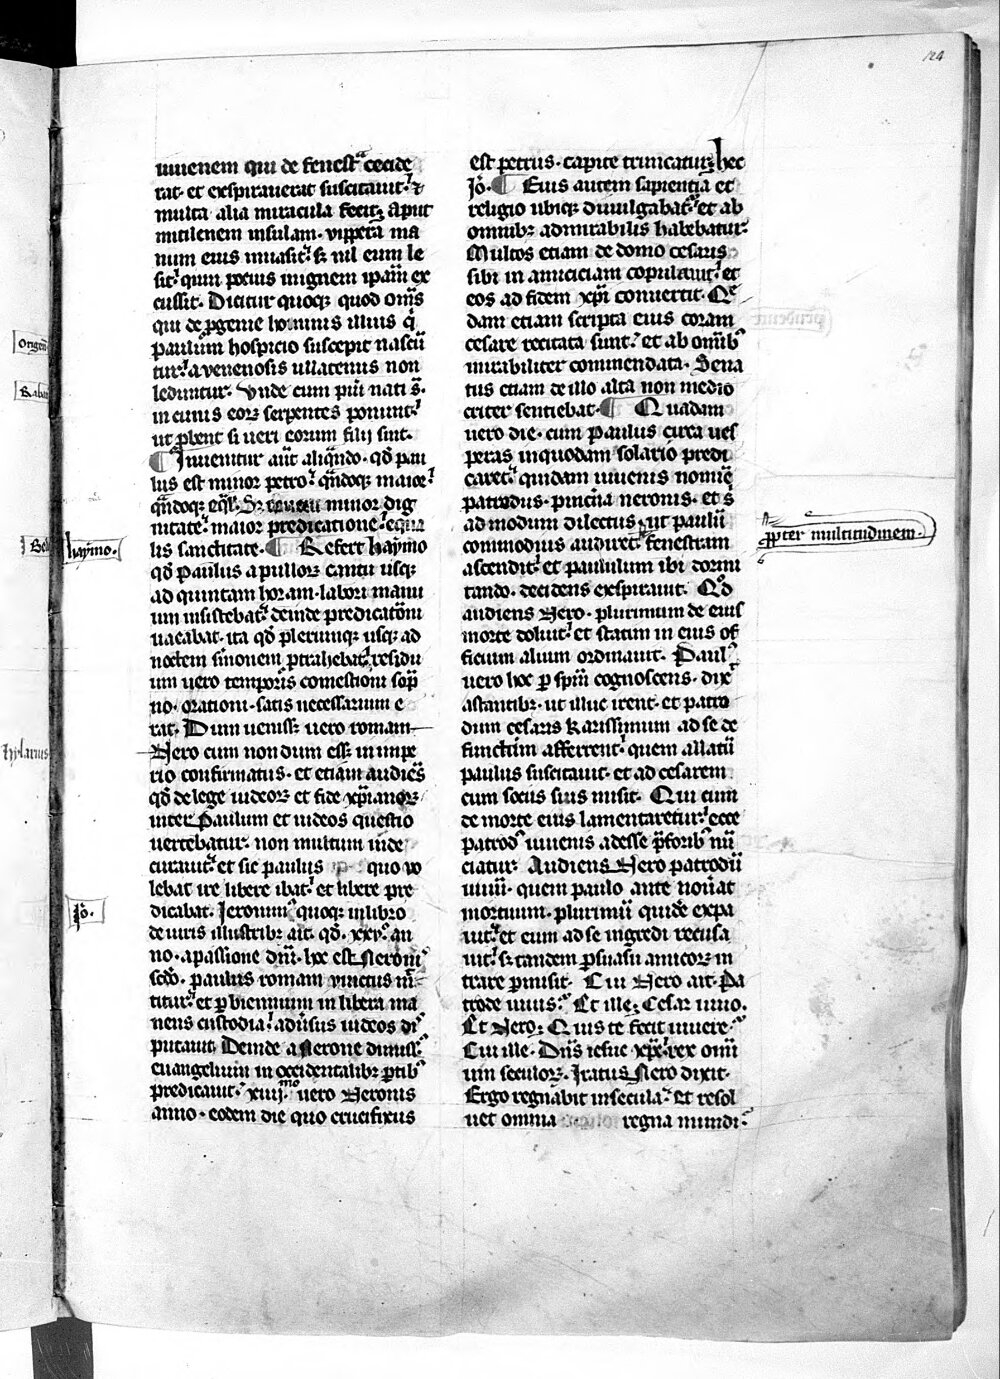 124
iuuenem qui de fenestᵃ cecide
rat· et exspirauerat suscitauit· ⁊
multa alia miracula fecit; Aput
mitilenem insulam· vippera ma
num eius inuasit· sꝫ nil eum le
sit· quin pocius in ignem ipam̄ ex
cussit· Dicitur quoqꝫ quod om̄s
qui de ꝓgenie hominis illius q̇
paulum hospicio suscepit nascū
tur· a venenosis ullatenus non
leduntur· Vnde cum pu̇i nati s̄·
in cunis eoꝝ serpentes ponunt᷑
ut ꝓbent si ueri eorum filij sint·
¶ Inuenitur aūt aliqn̄do· qd̄ pau
lus est minor petro· qn̄doqꝫ maior·
qn̄doqꝫ eql̓· minor dig
nitate· maior predicatione· equa
lis sanctitate· ¶ Refert haẏmo
qd̄ Paulus a pulloꝝ cantu usqꝫ
ad quintam horam· labori manu
um insistebat· deinde predicatōni
uacabat· ita qd̄ plerumqꝫ usqꝫ ad
noctem sm̄onem ꝓtrahebat· residu
um uero temporis comestioni sop̄
no· orationi· satis necessarium e
rat· Dum uenissꝫ uero romam
Nero cum non dum essꝫ in impe
rio confirmatus· et etiam audiēs
qd̄ de lege iudeoꝝ et fide xp̄ianoꝝ
inter Paulum et iudeos questio
uertebatur· non multum inde
curauit· et sic paulus quo vo
lebat ire libere ibat· et libere pre
dicabat· Ieronimꝰ quoqꝫ in libro
de uiris illustribꝫ ait· qd̄· xxvͦ· an
no· a passione dn̄i· hoc est Neronis
scd̄o· paulus romam vinctus mit
titur· et ꝑ biennium in libera ma
nens custodia· adūsus iudeos dis
putauit· Deinde a Nerone dimissꝰ·
euangelium in occidentalibꝫ ꝑtibꝰ
predicauit· xiiijͫͦ uero Neronis
anno· eodem die quo crucifixus
est petrus· capite truncatur; hec
Jō· ¶ Eius autem sapientia et
religio ubiqꝫ diuulgabat᷑· et ab
omnibꝫ admirabilis habebatur·
Multos etiam de domo cesaris
sibi in amiciciam copulauit· et
eos ad fidem xp̄i conuertit· Qͤ
dam etiam scripta eius coram
cesare recitata sunt· et ab om̄ibꝰ
mirabiliter commendata· Sena
tus etiam de illo alta non medio
criter sentiebat· ¶ Quadam
uero die· cum Paulus circa ues
peras in quodam solario predi
caret· quidam iuuenis nomīe
patrodus· pincn̄a neronis· et s̄
ad modum dilectus· ut paulū
commodius audiret· fenestram
ascendit· et paululum ibi dormi
tando· decidens exspirauit· Qd̄
audiens Nero· plurimum de eius
morte doluit· et statim in eius of
ficium alium ordinauit· Paulꝰ
uero hoc ꝑ spm̄ cognoscens· dix̄
astantibꝫ· ut illuc irent· et patro
dum cesaris karissimum ad se de
functum afferrent· quem allatū
paulus suscitauit· et ad cesarem
cum sociis suis misit· Qui cum
de morte eius lamentaretur· ecce
patrodꝰ iuuenis adesse p̄foribꝰ nū
ciatur· Audiens Nero patrodū
uiuū· quem paulo ante nou̇at
mortuum· plurimū quidē expa
uit· et eum ad se ingredi recusa
uit· sꝫ tandem ꝑsuasu amicoꝝ in
trare ꝑmisit· Cui Nero ait· Pa
trode uiuis· Et ille; Cesar uiuo·
Et Nero; Quis te fecit uiuere·
Cui ille· Dn̄s iesuc xp̄c· rex omī
um seculoꝝ· Iratus Nero dixit·
Ergo regnabit in secula· et resol
uet omnia regna mundi·
Haẏmo·
Jō·
ꝓpter multitudinem·
Hylarius